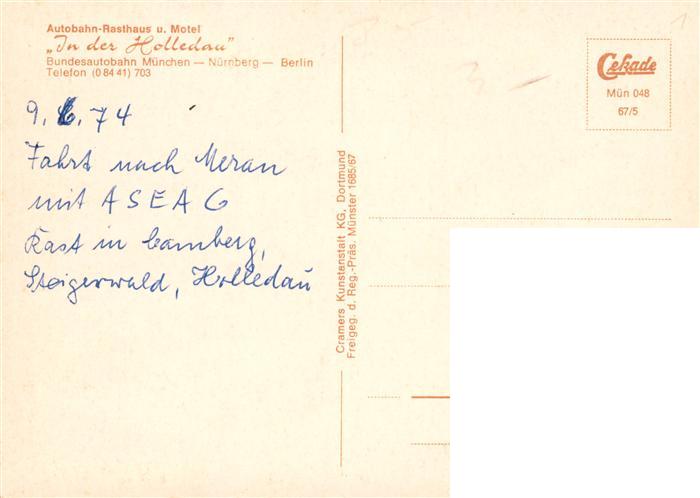 Autobahn-Rasthaus u. Motel
„In der Holledau”
Bundesautobahn München — Nürnberg — Berlin
Telefon (0 84 41) 703
9. 6. 74
Fahrt nach Meran
mit ASEAG
Rast in Camberg,
Steigerwald, Holledau
Cramers Kunstanstalt KG, Dortmund
Freigeg. d. Reg.-Präs. Münster 1685/67
Cekade
Mün 048
67/5